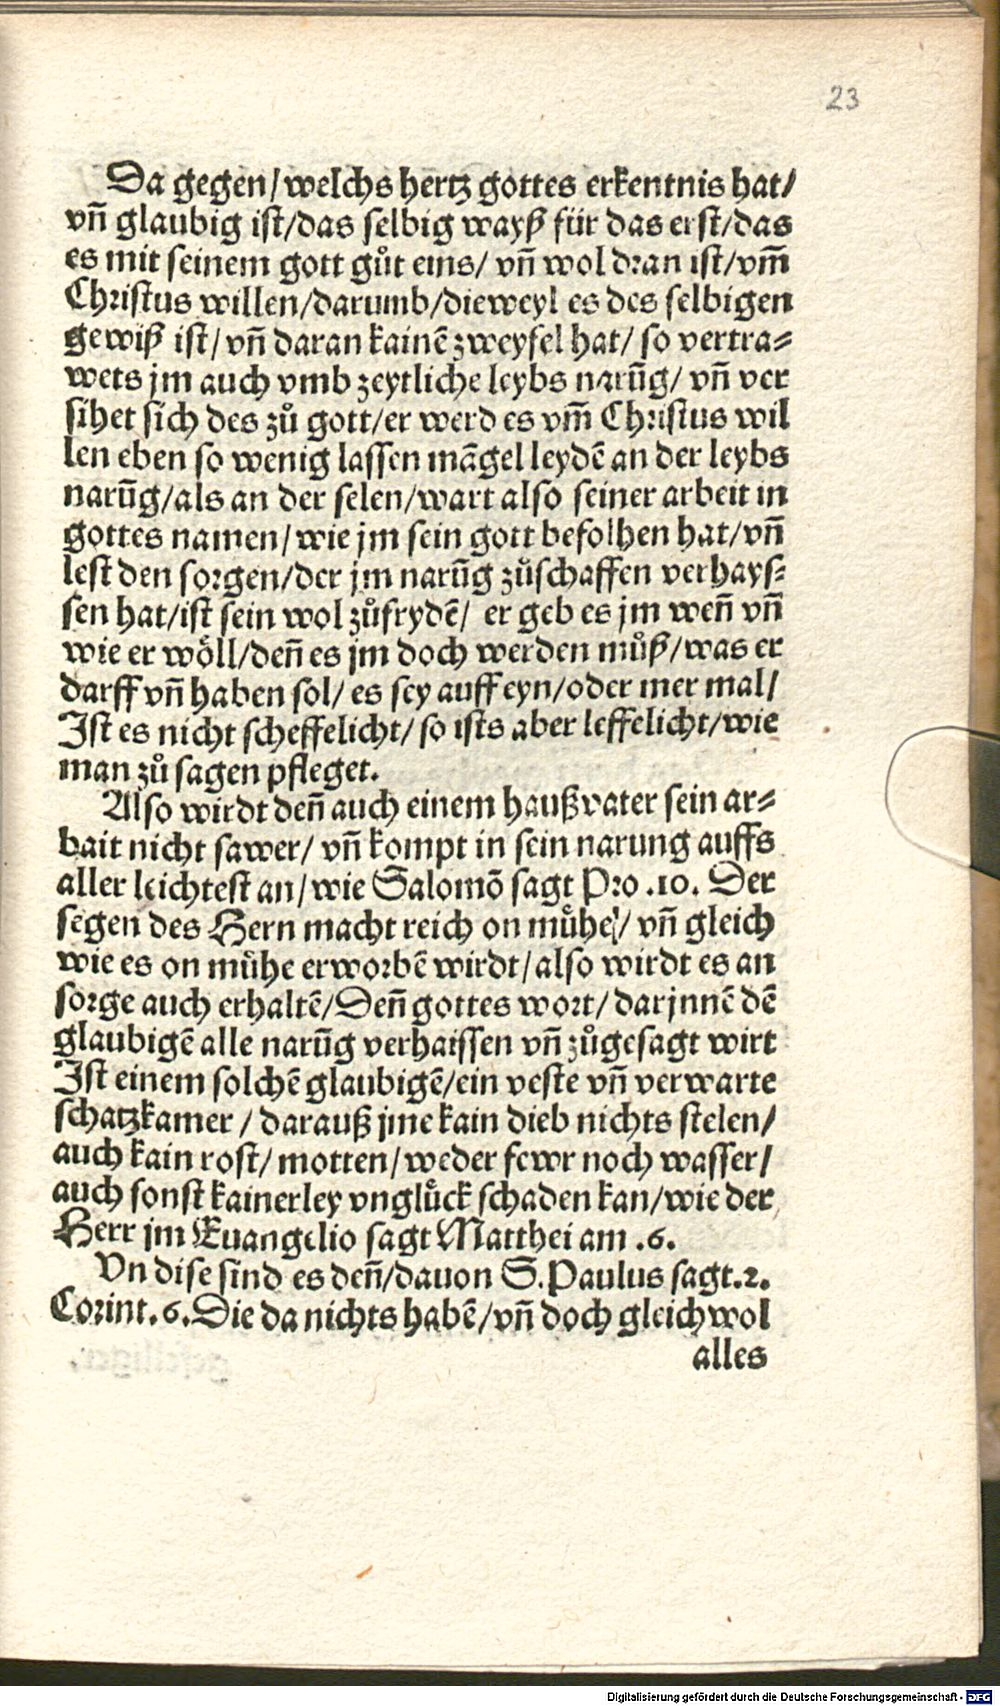 23
Da gegen/welchs hertz gottes erkentnis hat/
vñ glaubig ist/das selbig wayß für das erst/das
es mit seinem gott gůt eins/ vñ wol dran ist/vm̃
Christus willen/darumb/dieweyl es des selbigen
gewiß ist/vñ daran kainẽ zweyfel hat/ so vertra⸗
wets jm auch vmb zeytliche leybs narũg/ vñ ver
sihet sich des zů gott/er werd es vm̃ Christus wil
len eben so wenig lassen mãgel leydẽ an der leybs
narũg/als an der selen/wart also seiner arbeit in
gottes namen/wie jm sein gott befolhen hat/vñ
lest den sorgen/der jm narũg zůschaffen verhays⸗
sen hat/ist sein wol zůfrydẽ/ er geb es jm weñ vñ
wie er wöll/deñ es jm doch werden můß/was er
darff vñ haben sol/ es sey auff eyn/oder mer mal/
Ist es nicht scheffelicht/ so ists aber leffelicht/wie
man zů sagen pfleget.
Also wirdt deñ auch einem haußvater sein ar⸗
bait nicht sawer/ vñ kompt in sein narung auffs
aller leichtest an/wie Salomõ sagt Pro .10. Der
segen des Hern macht reich on můhe/ vñ gleich
wie es on můhe erworbẽ wirdt/also wirdt es an
sorge auch erhaltẽ/Deñ gottes wort/darjnnẽ dẽ
glaubigẽ alle narũg verhaissen vñ zůgesagt wirt
Ist einem solchẽ glaubigẽ/ein veste vñ verwarte
schatzkamer/darauß jme kain dieb nichts stelen/
auch kain rost/motten/weder fewr noch wasser/
auch sonst kainerley vnglůck schaden kan/wie der
Herr jm Euangelio sagt Matthei am .6.
Vn dise sind es deñ/dauon S.Paulus sagt.2.
Corint.6.Die da nichts habẽ/vñ doch gleichwol
alles
Digitalisierung gefördert durch die Deutsche Forschungsgemeinschaft - DFG